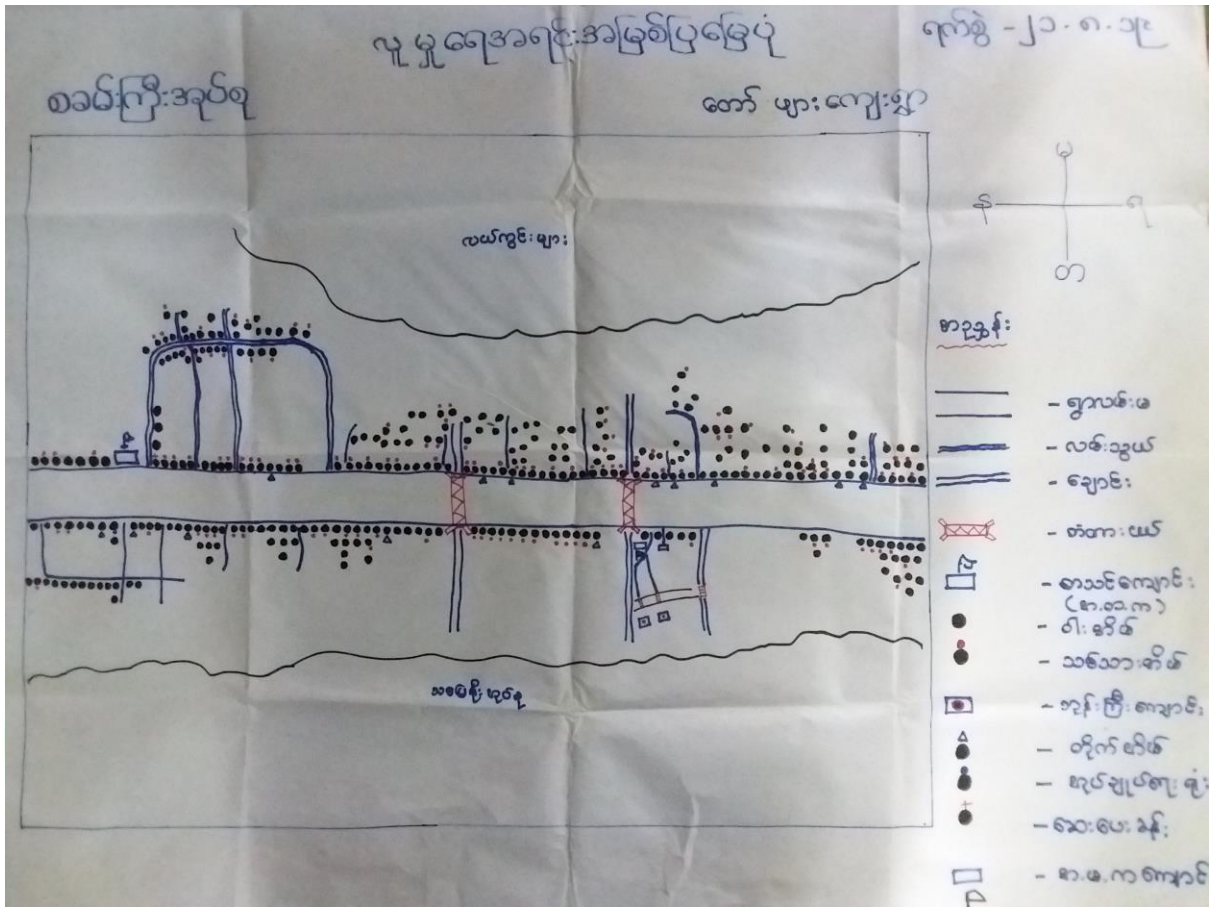 လူမှုရေအရင်းအမြစ်ပြမြေပုံ
ရက်စွဲ -၂၁.၈.၁၉
စခမ်းကြီးအုပ်စု
တော် ဖျားကျေးရွာ
မ
န
ရ
တ
လယ်ကွင်းများ
စာညွှန်း
- ရွာလမ်းမ
- လမ်းသွယ်
- ချောင်း
- တံတားငယ်
- စာသင်ကျောင်း
- ဝါးအိမ်
- သစ်သားအိမ်
- ဘုန်းကြီးကျောင်း
- တိုက်အိမ်
- အုပ်ချုပ်ရေးရုံး
- ဆေးပေးခန်း
- စာ.မ.ကကျောင်း